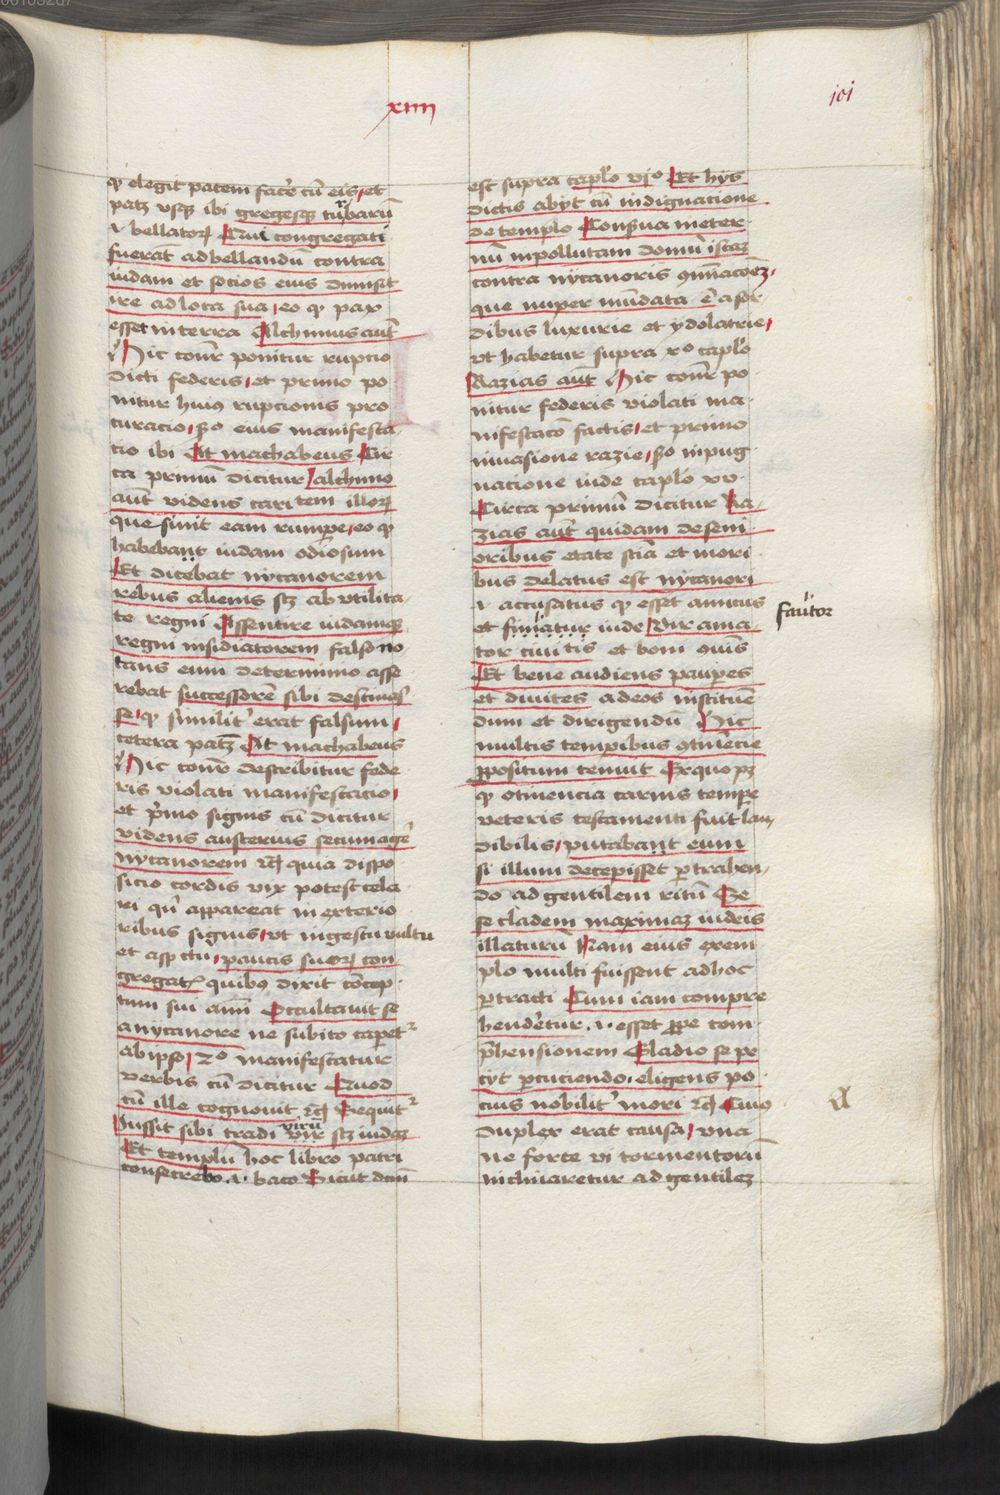 xiiii
101
ꝙ elegit pacem facere cū eis, et
patꝫ vsqꝫ ibi gregesqꝫ turbarū
⁊ bellatoꝝ Qui congregati
fuerāt ad bellandū contra
iudam et socios eius dimisit
ire ad loca sua, eo ꝙ pax
esset in terra Alchimus autē
Hic conꝛ ponitur rupcio
dicti federis, et primo po
nitur huiꝰ rupcionis pro
curacio, scdo eius manifesta
cio ibi At machabeus Cir
ca primū dicitur alchimo
aūt videns caritatem illoꝝ
que sinit eam rumpe, eo ꝙ
habebant iudam odiosum
Et dicebat nycanorem
rebus alienis scꝫ ab vtilita
te regni Assentire iudamqꝫ
regni insidiatorem falso no
tans eum determino asse
rebat successorē sibi destinasse
se, ꝙ similitˀ erat falsum,
cetera patꝫ At machabeus
Hic conꝛ describitur fede
ris violati manifestacio,
et pͥmo signis cū dicitur
videns austerius secum agē
nycanorem ⁊cꝫ quia dispo
sicio cordis vix potest cela
ri qn̄ appareat in exterio
ribus signis, vt in gestu vultu
et aspctu, paucis suoꝝ con
gregatꝭ quibꝰ dixit cōcep
tum sui aīmi Occultauit se
a nycanore ne subito caperetˀ
ab ipso, 2o manifestatur
verbis cū dicitur Quod
cū ille cognouit ⁊cꝫ Sequitˀ
Iussit sibi tradi virū scꝫ iudaꝫ
virū
Et templū hoc libro patri
consecrebo .i. baco Sicut dnm̄
est supra caplo vjo Et hys
dictis abyt cū indignacione
de templo Conserua in eter
nū inpollutam domū istaꝫ
contra nycanoris ꝯminacoēꝫ,
que nuper mūdata ē a sor
dibus luxurie et ydolatrie,
vt habetur supra xo caplo
Razias aūt Hic conꝛ po
nitur federis violati ma
nifestacō factis, et primo
inuasione razie, scdo inpug
nacione iude caplo xv
Circa primū dicitur Ra
zias aūt quidam de seni
oribus etate sciā et mori
bus delatus est nycanori
⁊ accusatus ꝙ esset amicus
et firmatur iude Vir ama
fautor
tor ciuitatis et boni ꝯmūis
Et bene audiens paupes
et diuites ad eos instituē
dum et dirigendū Hic
multis tempibus ꝯtinēcie
ꝓpositum tenuit Ex quo pꝫ
ꝙ ꝯtinencia carnis tempe
veteris testamenti fuit lau
dibilis, putabant eum
si illum decepisset ꝑtrahen
do ad gentilem ritū Se
se cladem maximaꝫ iudeis
illaturū Nam eius exem
plo multi fuissent ad hoc
ꝑtracti Cum iam compre
henderetur .i. esset prope com
p̄hensionem Gladio se pe
cyt ꝑcuciendo, eligens po
cius nobilitˀ mori ⁊cꝫ Cuiꝰ
duplex erat causa, vna
ne forte vi tormentorū
inclinaretur ad gentileꝫ